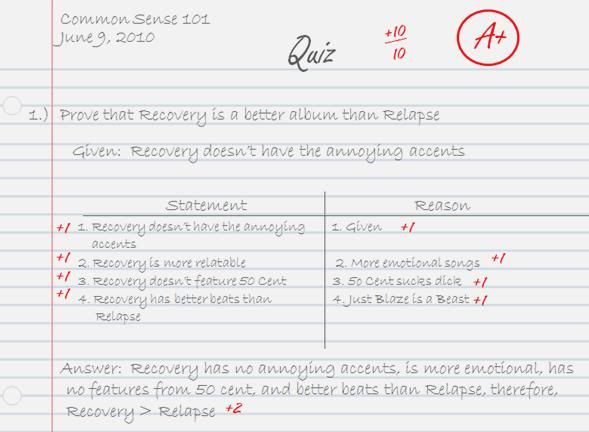 Common Sense 101
June 9, 2010
Quiz
+10
10
A+
1.) Prove that Recovery is a better album than Relapse
Given: Recovery doesn't have the annoying accents
Statement Reason
+1 1. Recovery doesn't have the annoying 1. Given +1
accents
+1 2. Recovery is more relatable 2. More emotional songs +1
+1 3. Recovery doesn't feature 50 Cent 3. 50 Cent sucks dick +1
+1 4. Recovery has better beats than 4. Just Blaze is a Beast +1
Relapse
Answer: Recovery has no annoying accents, is more emotional, has
no features from 50 cent, and better beats than Relapse, therefore,
Recovery > Relapse +2